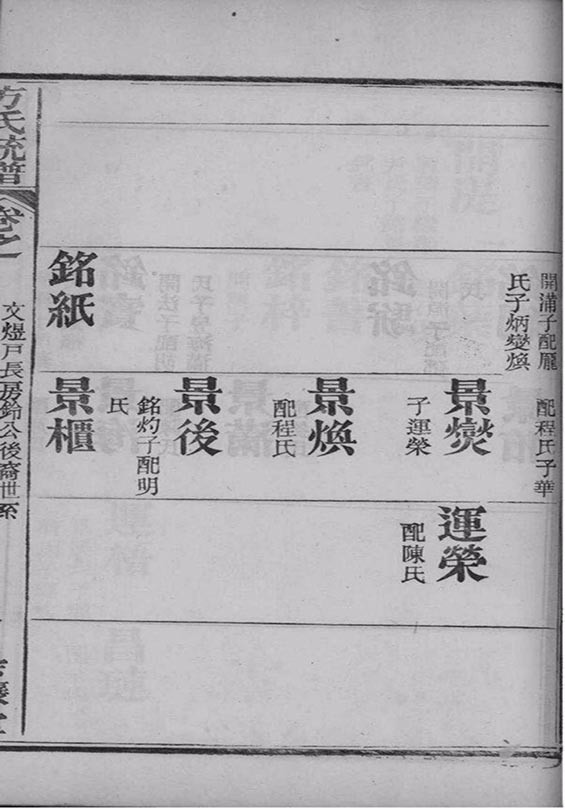 開滿子配龐
氏子炳變煥
銘紙
配程氏子華
景爕
子運榮
景煥
配程氏
景後
銘灼子配明
氏
景櫃
運榮
配陳氏
方氏統譜
卷之一
文煜戶長房鈴公後裔世系